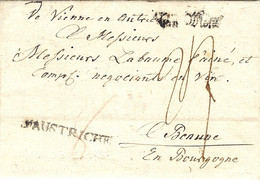 De Vienne en Autriche
A Messieurs
Messieurs Labaume l'ainé, et
Comp. negocians en Vin.
D'AUTRICHE
à Beaune
En Bourgogne